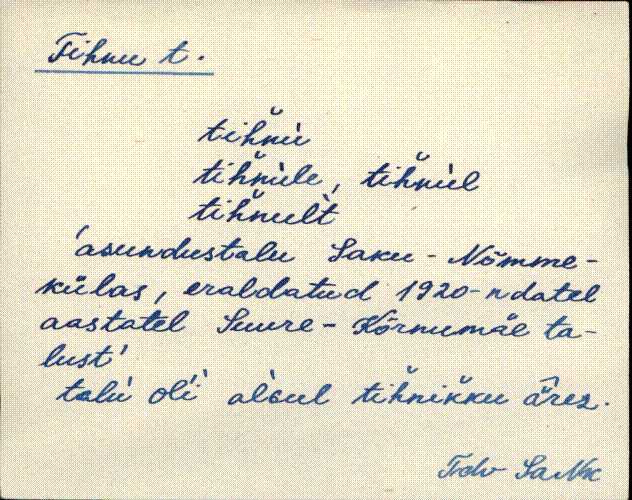 Tihnu t.
tih̆nù
tih̆nùle, tih̆nùl
tih̆nult̀
'asundustalu Saku-Nõmme-
külas, eraldatud 1920-ndatel
aastatel Suure-Kõrnumäe ta-
lust'
talù olì al̀sul tih̆nik̆ku ârez.